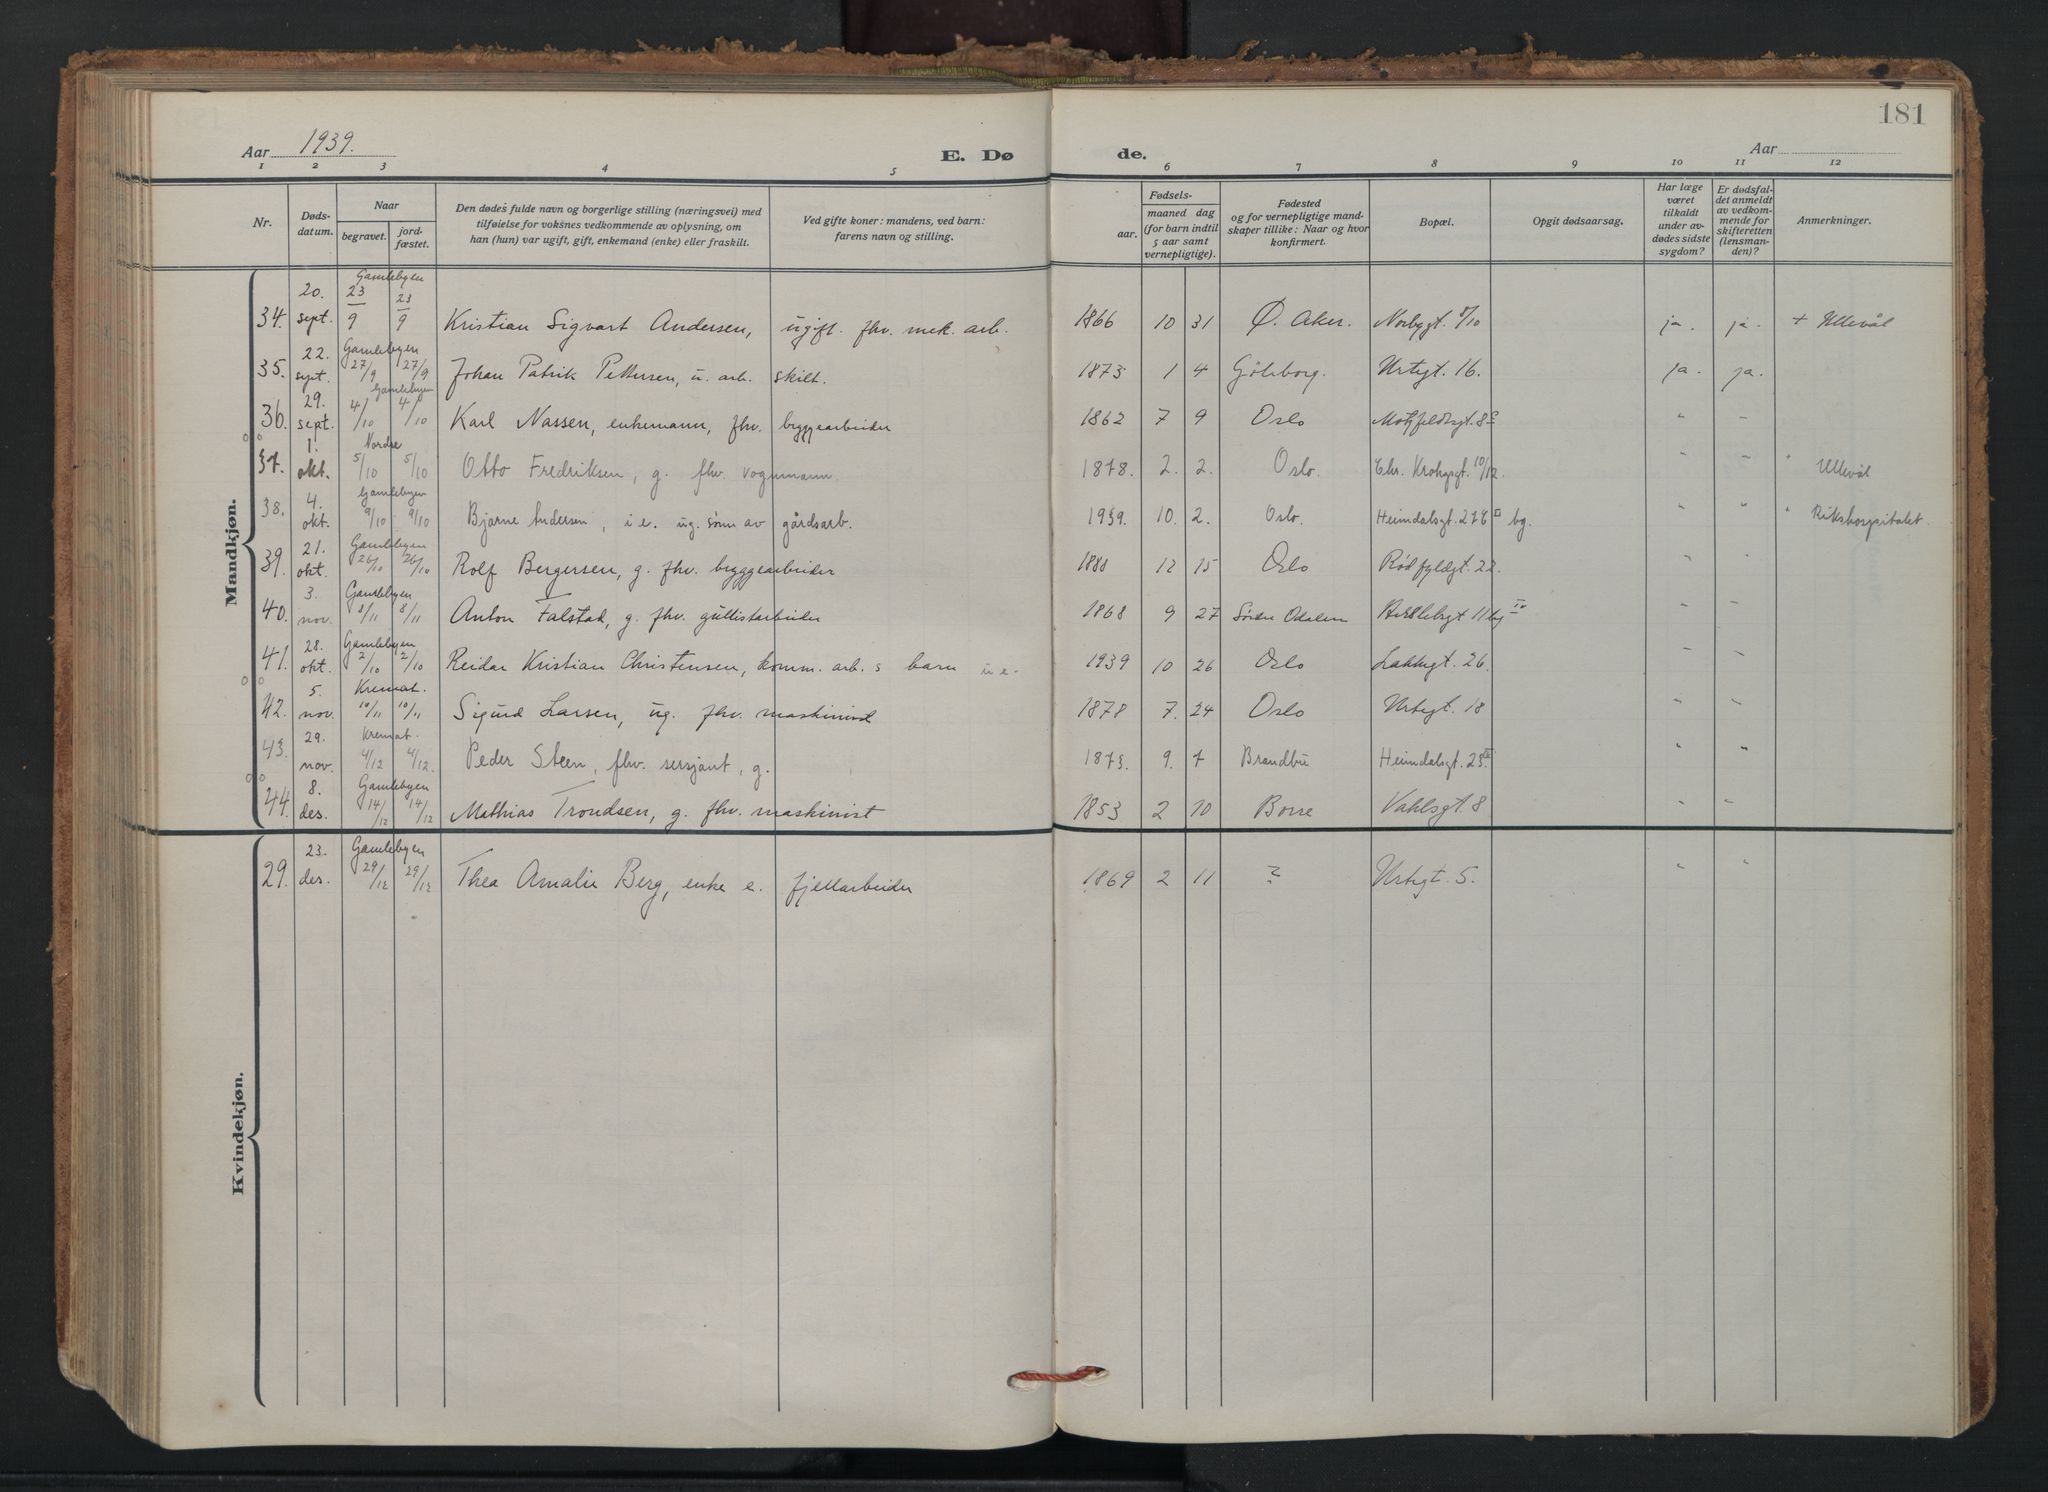 181
Aar 1939. E. Dø de. Aar
1 2 3 4 5 6 7 8 9 10 11 12
Nr. Døds-datum. Naar begravet. jord-fæstet. Den dødes fulde navn og borgerlige stilling (næringsvei) med tilføielse for voksnes vedkommende av oplysning, om han (hun) var ugift, gift, enkemand (enke) eller fraskilt. Ved gifte koner: mandens, ved barn: farens navn og stilling. Fødsels- aar. maaned dag (for barn indtil 5 aar samt vernepligtige). Fødested og for vernepligtige mandskaper tillike: Naar og hvor konfirmert. Bopæl. Opgit dødsaarsag. Har læge været tilkaldt under avdødes sidste sygdom? Er dødsfaldet anmeldt av vedkommende for skifteretten (lensmanden)? Anmerkninger.
Mandkjøn.
34. 20. sept. Gamlebyen 23/9 23/9 Kristian Sigvart Andersen, ugift. fhv. mek. arb. 1866 10 31 Ø. Aker. Norbygt. ja. ja. + Ullevål
35. 22. sept. Gamlebyen 27/9 27/9 Johan Patrik Pettersen, u. arb. skilt. 1873 1 4 Göteborg. Urtegt. 16. ja. ja.
36. 29. sept. Gamlebyen 4/10 4/10 Karl Nassen, enkemann, fhv. bryggearbeider 1862 7 9 Oslo Motzfeldtsgt. 8 " "
37. 1. okt. Nordre 5/10 5/10 Otto Fredriksen, g. fhv. vognmann. 1878. 2. 2. Oslo. Chr. Krohgsgt. 10/12. " " " Ullevål
38. 4. okt. Gamlebyen 9/10 9/10 Bjarne Andersen, i e. ug. sønn av gårdsarb. 1939. 10. 2. Oslo. Heimdalsgt. 27 bg. " " " Rikshospitalet.
39. 21. okt. Gamlebyen 26/10 26/10 Rolf Bergersen, g. fhv. bryggearbeider 1888 12 15 Oslo Rødfyldgt. 22. " "
40. 3. nov. Gamlebyen 8/11 8/11 Anton Falstad, g. fhv. gullistarbeider 1868 9 27 Søndre Odalen Herslebsgt 11 bg IV " "
41. 28. okt. Gamlebyen 2/10 2/10 Reidar Kristian Christensen, komm. arb. s barn u e. 1939 10 26 Oslo Lakkegt. 26. " "
42. 5. nov. Kremat. 10/11 10/11 Sigurd Larsen, ug. fhv. maskinist 1878 7. 24 Oslo Urtegt. 18 " "
43. 29. nov. Kremat. 4/12 4/12. Peder Steen, fhv. sersjant, g. 1873. 9. 7 Brandbu Heimdalsgt. 23 " "
44. 8. des. Gamlebyen 14/12 14/12 Mathias Trondsen, g. fhv. maskinist 1853 2 10 Borre Vahlsgt. 8 " "
Kvindekjøn.
29. 23. des. Gamlebyen 29/12 29/12 Thea Amalie Berg, enke e. fjellarbeider 1869 2 11 ? Urtegt. 5. " "